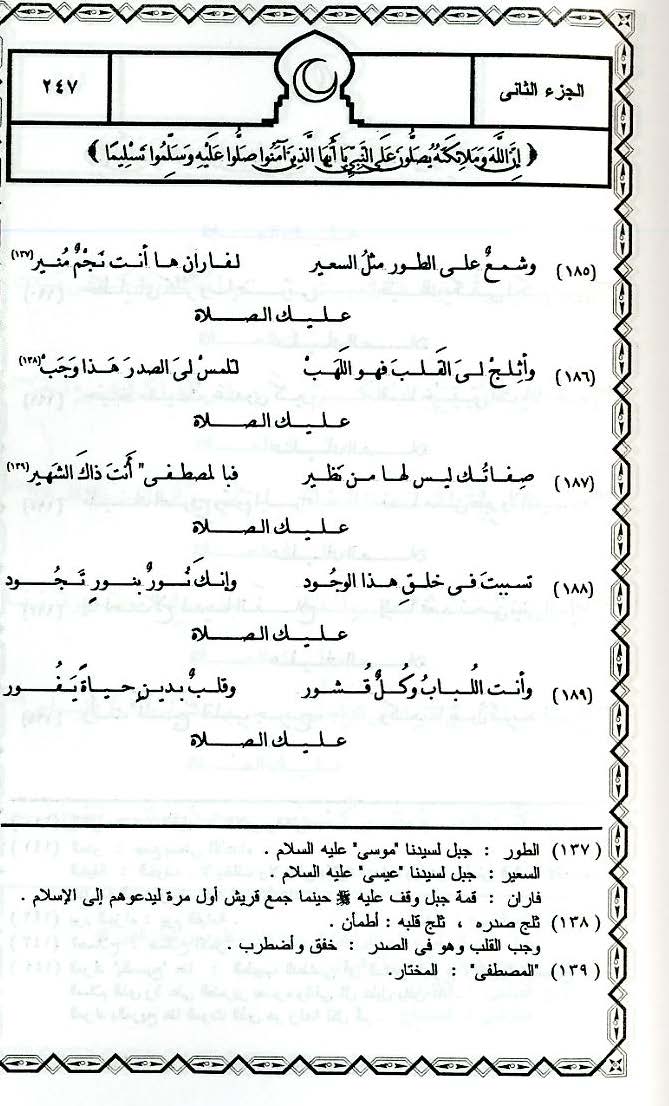 الجزء الثانى
٢٤٧
﴿ إِنَّ اللَّهَ وَمَلَائِكَتَهُ يُصَلُّونَ عَلَى النَّبِيِّ يَا أَيُّهَا الَّذِينَ آمَنُوا صَلُّوا عَلَيْهِ وَسَلِّمُوا تَسْلِيمًا ﴾
(١٨٥) وشمعٌ على الطور مثلُ السعير لفاران ها أنت نَجْمٌ مُنير(١٣٧)
عليك الصلاة
(١٨٦) وأثلِجْ لىَ القَلبَ فهو اللَّهَبْ تلمسْ لىَ الصدرَ هَذا وَجَبْ(١٣٨)
عليك الصلاة
(١٨٧) صِفاتُك ليس لها من نَظير فبالمصطفى" أَنتَ ذاكَ الشهير(١٣٩)
عليك الصلاة
(١٨٨) تسببتَ فى خلقِ هذا الوجُود وإنكَ نُورٌ بنورٍ تَجُود
عليك الصلاة
(١٨٩) وأنت اللُبابُ وكُلٌ قُشور وقلبٌ بدينٍ حياةً يَفُور
عليك الصلاة
(١٣٧) الطور : جبل لسيدنا "موسى" عليه السلام .
السعير : جبل لسيدنا "عيسى" عليه السلام .
فاران : قمة جبل وقف عليه ﷺ حينما جمع قريش أول مرة ليدعوهم إلى الإسلام .
(١٣٨) ثلج صدره ، ثلج قلبه : أطمأن .
وجب القلب وهو فى الصدر : خفق وأضطرب .
(١٣٩) "المصطفى" : المختار.